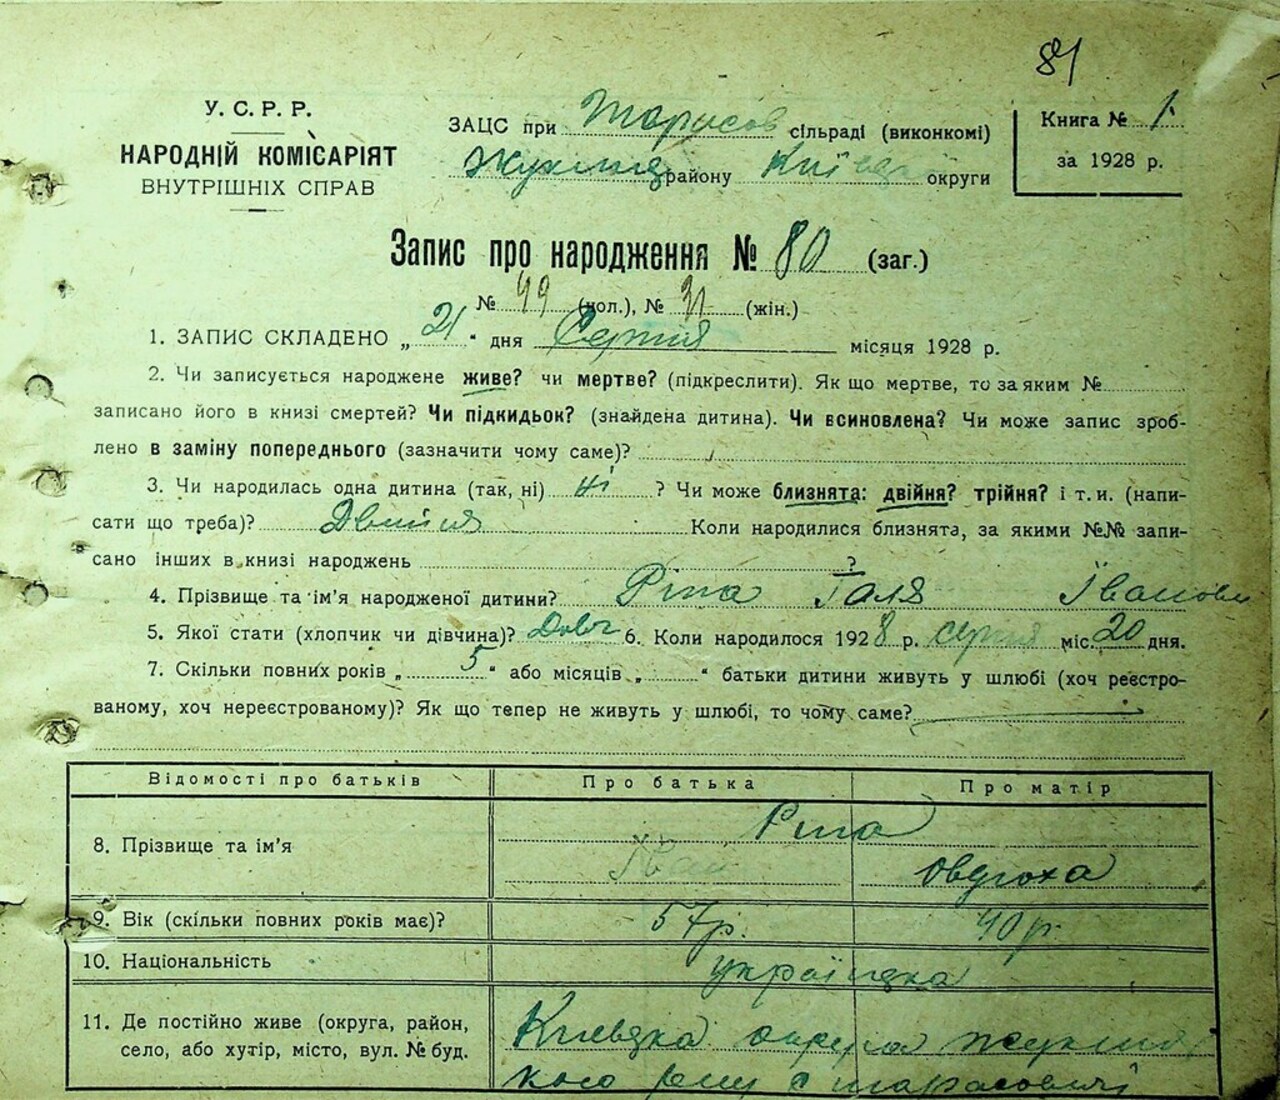 84
У. С. Р. Р.
НАРОДНІЙ КОМІСАРІЯТ
ВНУТРІШНІХ СПРАВ
ЗАЦС при Тарасов сільраді (виконкомі)
району Київськ округи
Книга № 1.
за 1928 р.
Запис про народження № 80 (заг.)
№ 49 (чол.), № 31 (жін.)
1. ЗАПИС СКЛАДЕНО „ 21 “ дня Серпня місяця 1928 р.
2. Чи записується народжене живе? чи мертве? (підкреслити). Як що мертве, то за яким №
записано його в книзі смертей? Чи підкидьок? (знайдена дитина). Чи всиновлена? Чи може запис зроб-
лено в заміну попереднього (зазначити чому саме)?
3. Чи народилась одна дитина (так, ні) ні ? Чи може близнята: двійня? трійня? і т. и. (напи-
сати що треба)? Двійня Коли народилися близнята, за якими №№ запи-
сано інших в книзі народжень ?
4. Прізвище та ім'я народженої дитини? Ріпа Галя Івановн
5. Якої стати (хлопчик чи дівчина)? Дівч 6. Коли народилося 1928 р. серпня міс. 20 дня.
7. Скільки повних років „ 5 “ або місяців „ “ батьки дитини живуть у шлюбі (хоч реєстро-
ваному, хоч нереєстрованому)? Як що тепер не живуть у шлюбі, то чому саме?
Відомості про батьків Про батька Про матір
8. Прізвище та ім'я Ріпа
Іван Овдоха
9. Вік (скільки повних років має)? 57р. 40р.
10. Національність українська
11. Де постійно живе (округа, район,
село, або хутір, місто, вул. № буд.
Київська округа жукинсь
кого рону с тарасовичі